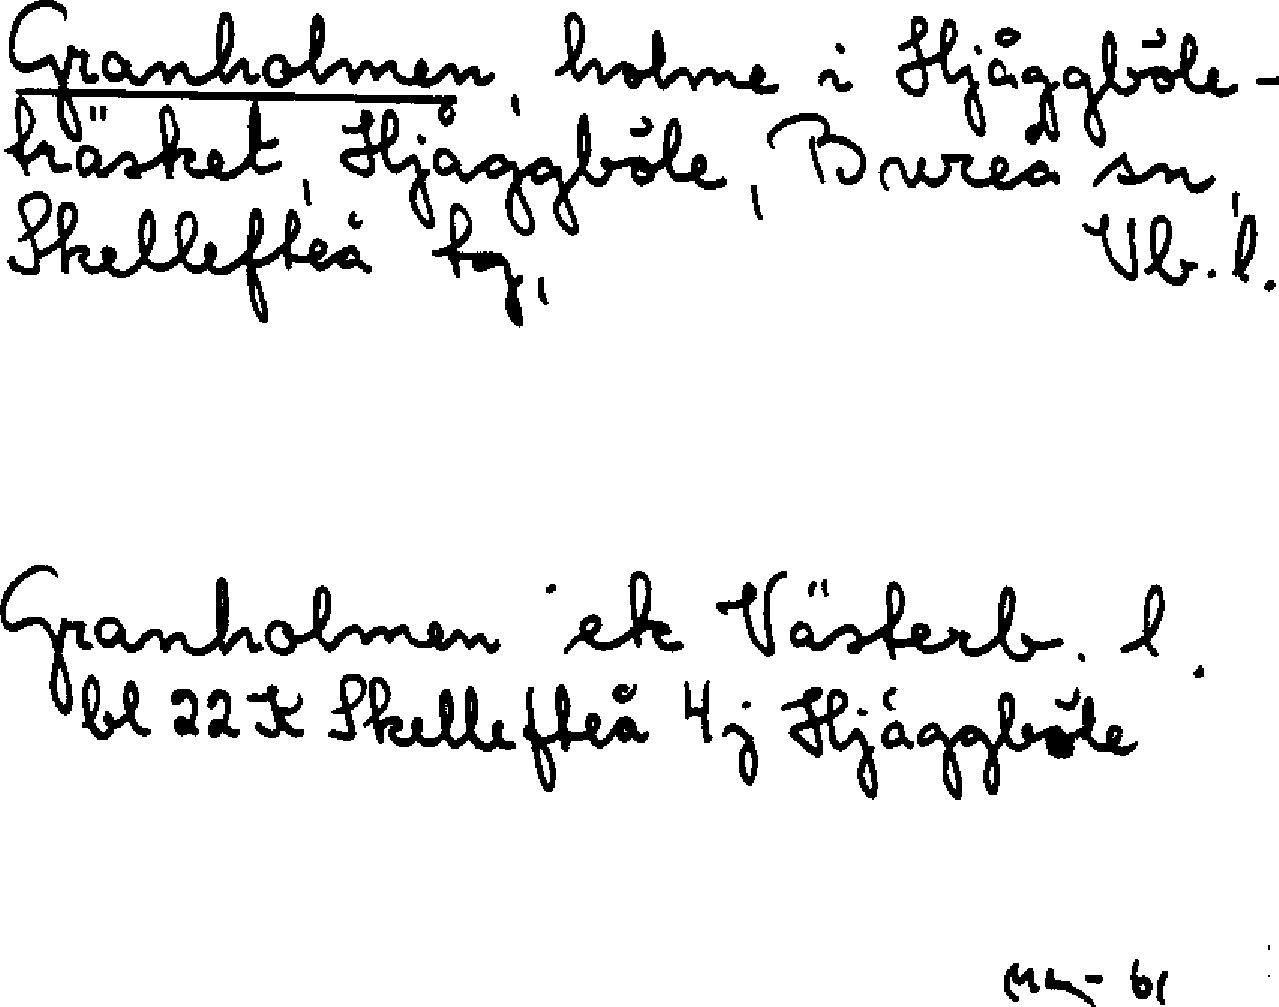 Granholmen, holme i Hjåggböle-
träsket, Hjåggböle, Bureå sn,
Skellefteå tg, Vb. l.
Granholmen ek Västerb. l.
bl 22 K Skellefteå 4j Hjåggböle
61